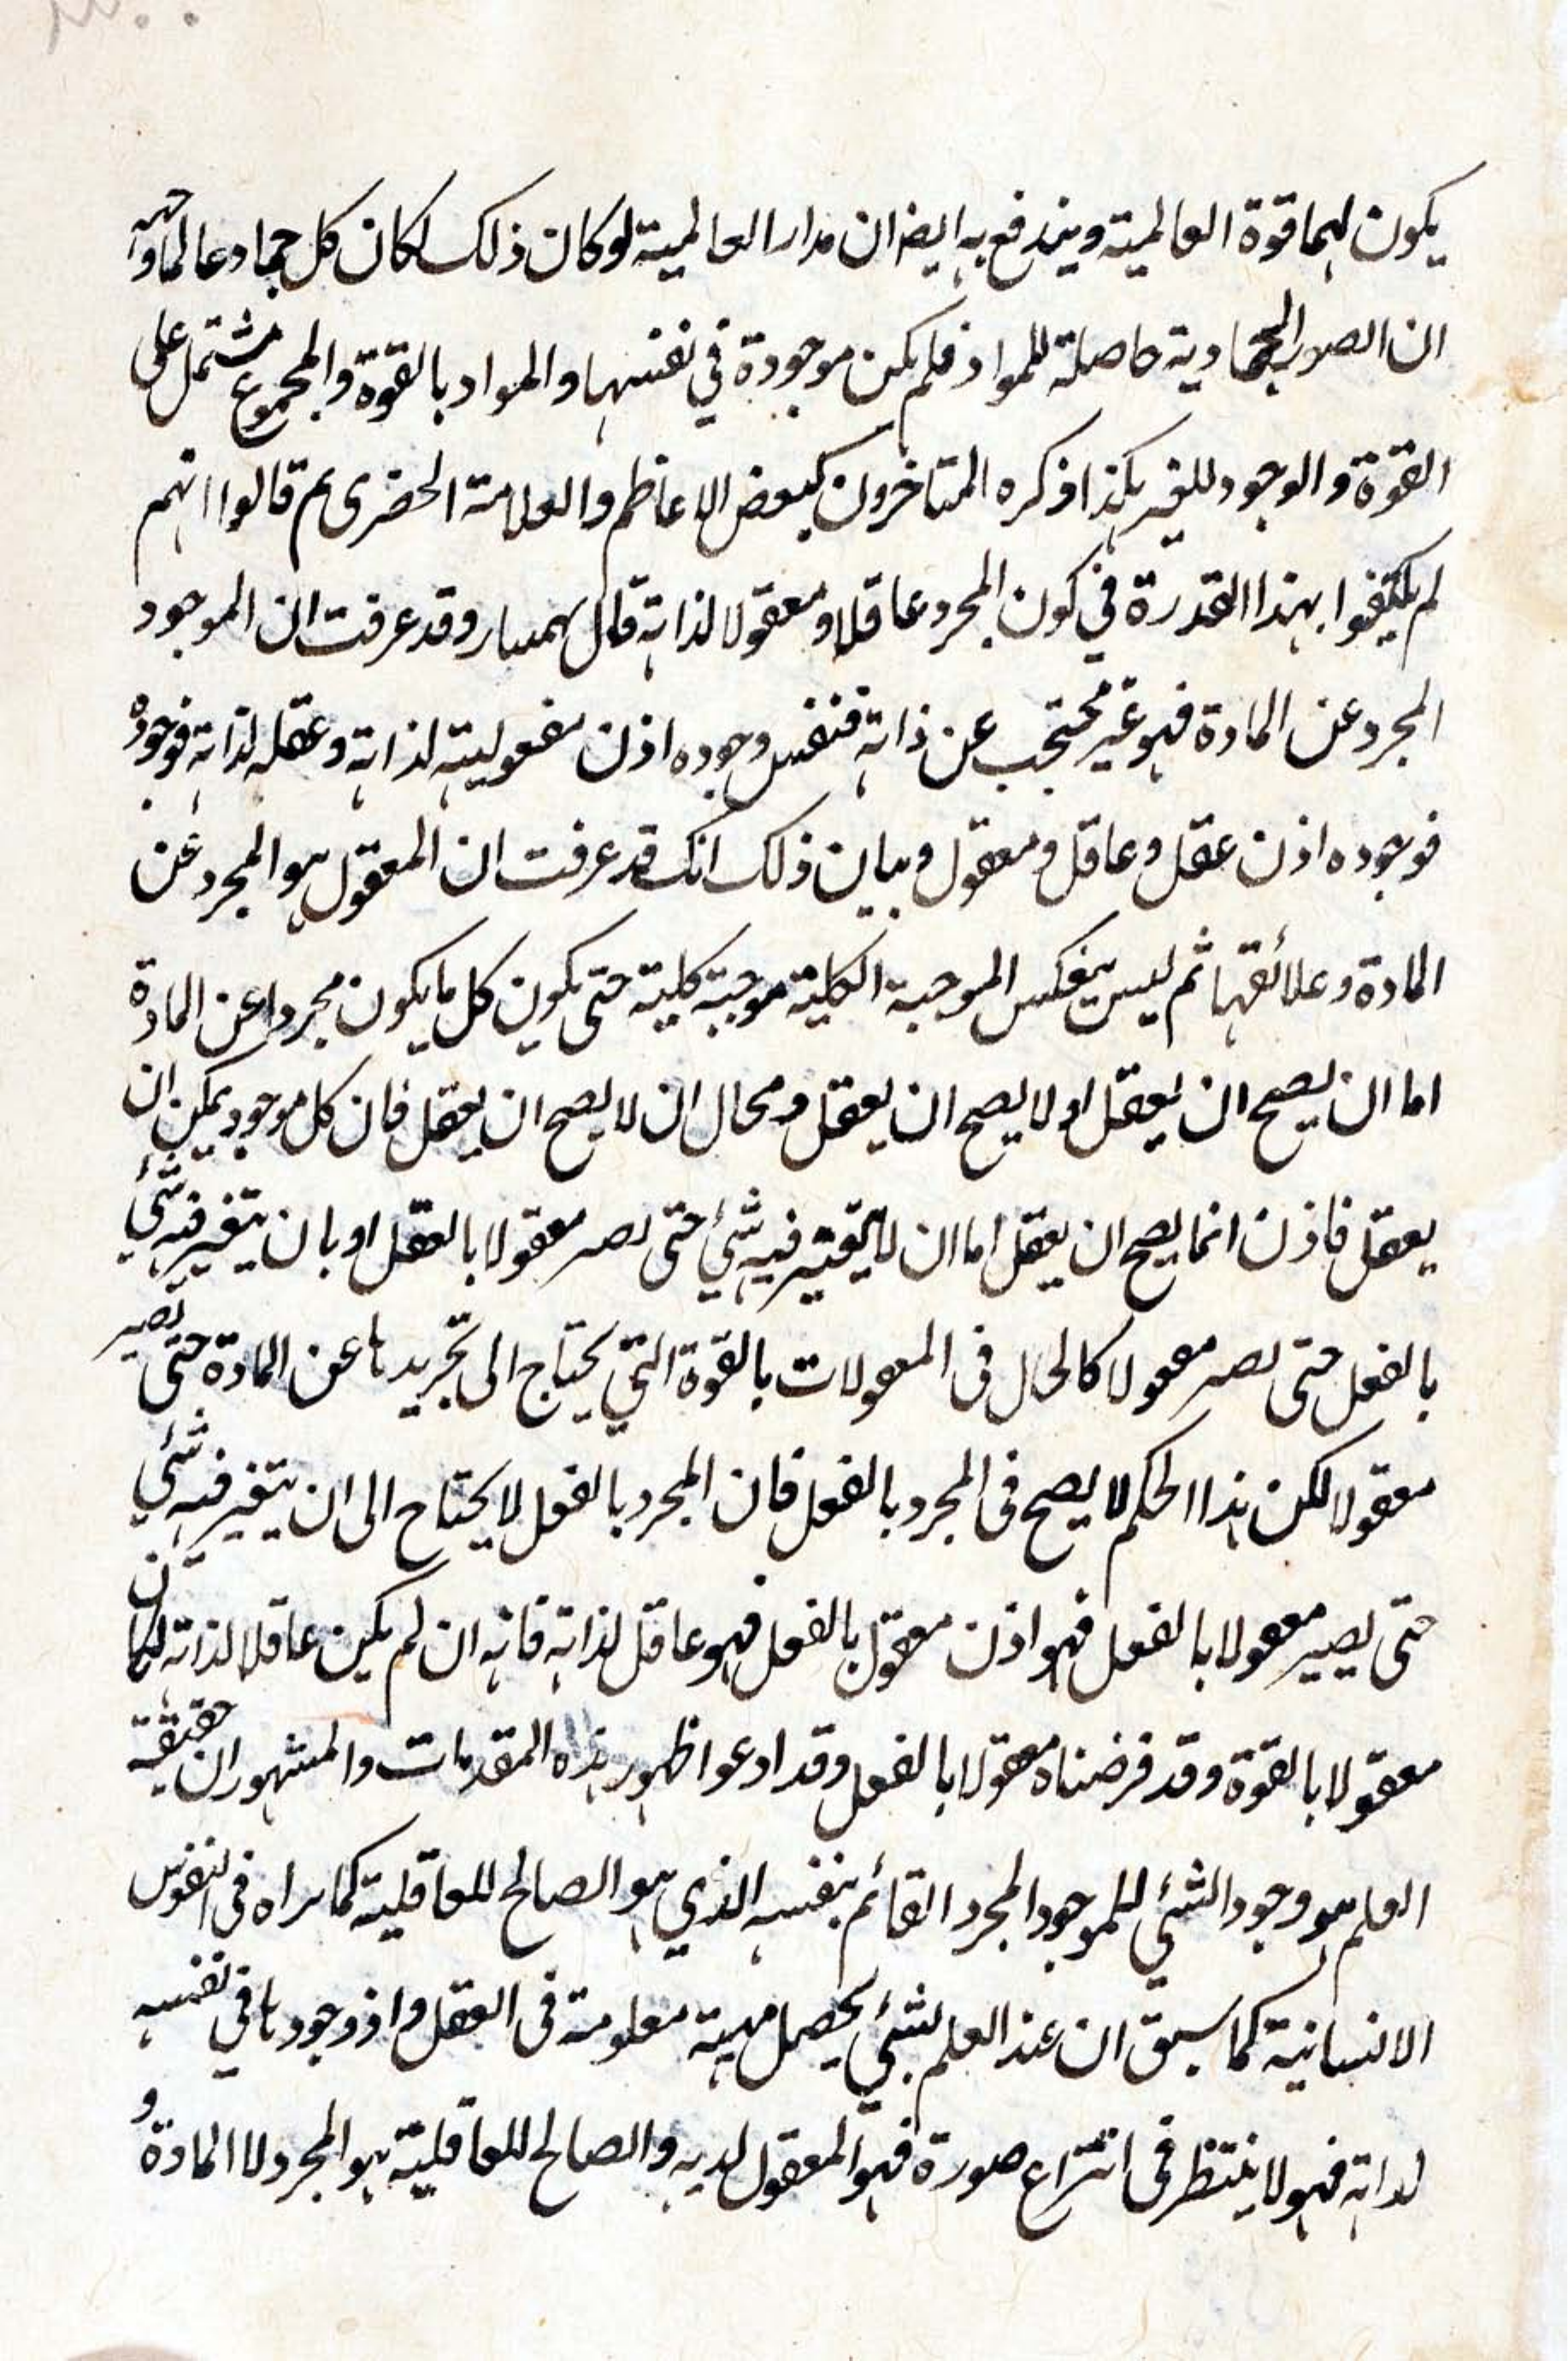 يكون لهما قوة العالمية ويندفع به ايضا ان مدار العالمية لو كان ذلك لكان كل جماد عالما وجه
ان الصور الجمادية حاصلة للمواد فلم يكن موجودة في نفسها والمواد بالقوة والمجموع مشتمل على
القوة والوجود للغير هكذا ذكره المتاخرون كبعض الاعاظم والعلامة الخضرى ثم قالوا انهم
لم يكتفوا بهذا القدرة في كون المجرد عاقلا ومعقولا لذاته قال بهمنيار وقد عرفت ان الموجود
المجرد عن المادة فهو غير محتجب عن ذاته فنفس وجوده اذن معقوليته لذاته وعقله لذاته فوجوده
فوجوده اذن عقل وعاقل ومعقول وبيان ذلك انك قد عرفت ان المعقول هو المجرد عن
المادة وعلائقها ثم ليس ينعكس الموجبة الكلية موجبة كلية حتى يكون كل ما يكون مجردا عن المادة
اما ان يصح ان يعقل او لا يصح ان يعقل ومحال ان لا يصح ان يعقل فان كل موجود يمكن ان
يعقل فاذن انما يصح ان يعقل اما ان لا يتغير فيه شئ حتى يصير معقولا بالعقل او بان يتغير فيه شئ
بالفعل حتى يصير معقولا كالحال فى المعقولات بالقوة التي يحتاج الى تجريدها عن المادة حتى يصير
معقولا لكن هذا الحكم لا يصح فى المجرد بالفعل فان المجرد بالفعل لا يحتاج الى ان يتغير فيه شئ
حتى يصير معقولا بالفعل فهو اذن معقول بالفعل فهو عاقل لذاته فانه ان لم يكن عاقلا لذاته لكان
معقولا بالقوة وقد فرضناه معقولا بالفعل وقد ادعوا ظهور هذه المقدمات والمشهور ان حقيقة
العلم هو وجود الشئ للموجود المجرد القائم بنفسه الذي هو الصالح للعاقلية كما نراه فى النفوس
الانسانية كما سبق ان عند العلم بشئ يحصل مهية معلومة فى العقل واذ وجودها في نفسه
لذاته فهو لا ينتظر فى انتزاع صورة فهو المعقول لديه والصالح للعاقلية هو المجرد لا المادة و